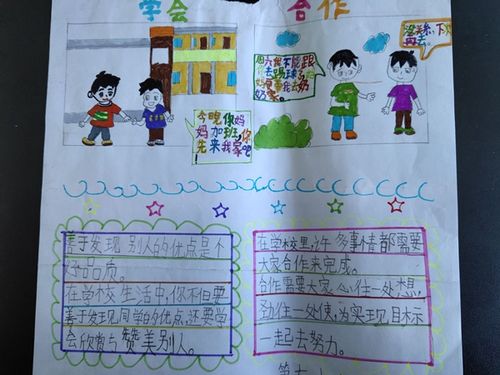 学会 合作
今晚你妈
妈加班,你
先来我家吧
周六我不能跟
你去踢球了
妈要带我去奶
奶家。
没关系,下次
再去。
善于发现别人的优点是个
好品质。
在学校生活中,你不但要
善于发现同学的优点,还要学
会欣赏与赞美别人。
在学校里,许多事情都需要
大家合作来完成。
合作需要大家心往一处想,
劲往一处使,为实现目标
一起去努力。